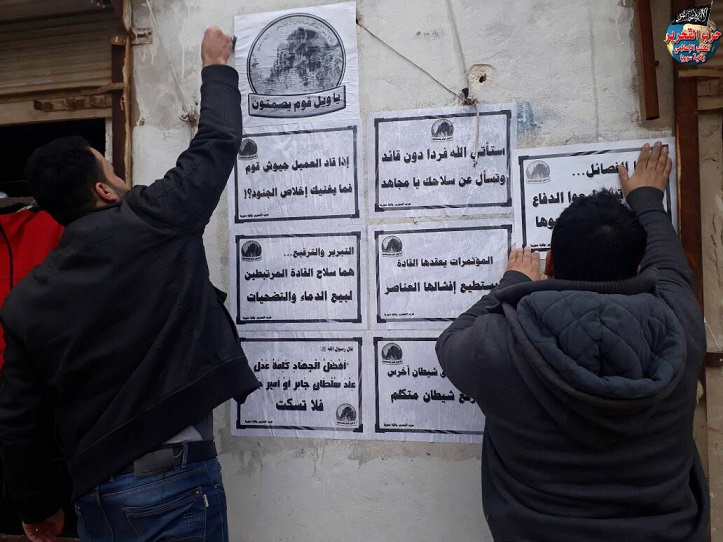 حزب التحرير
المكتب الإعلامي
ولاية سوريا
يا ويل قوم يصمتون
إذا قاد العميل جيوش قوم
فما يغنيك إخلاص الجنود؟!
حزب التحرير ولاية سورية
ستأتي الله فردا دون قائد
وتسأل عن سلاحك يا مجاهد
الفصائل...
الدفاع
التبرير والترقيع...
هما سلاح القادة المرتبطين
لبيع الدماء والتضحيات
حزب التحرير ولاية سورية
المؤتمرات يعقدها القادة
يستطيع إفشالها العناصر
قال رسول الله ﷺ
"أفضل الجهاد كلمة عدل
عند سلطان جائر أو أمير
فلا تسكت
شيطان أخرس
شيطان متكلم
حزب التحرير ولاية سورية